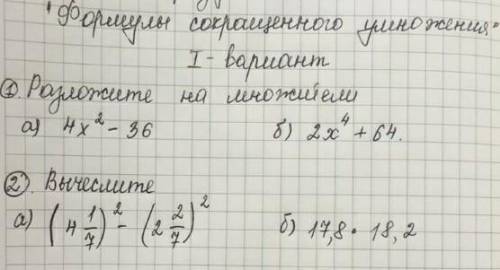 "Формулы сокращенного умножения"
I - вариант
① Разложите на множители
а) 4x² - 36 б) 2x⁴ + 64.
② Вычеслите
а) (4 1/7)² - (2 2/7)² б) 17,8 · 18,2